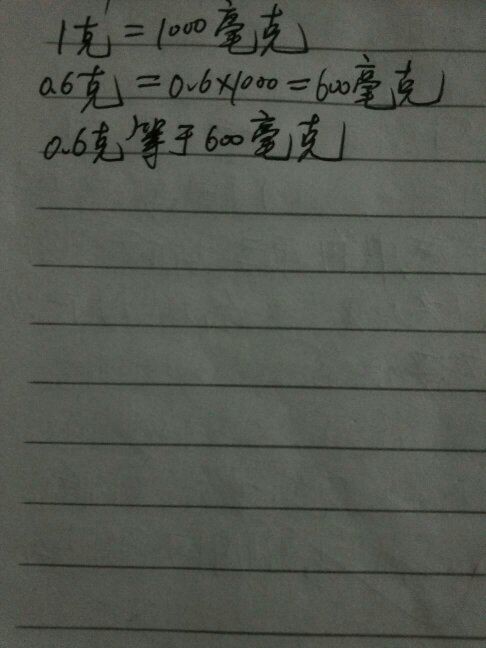 1克=1000毫克
0.6克=0.6×1000=600毫克
0.6克等于600毫克